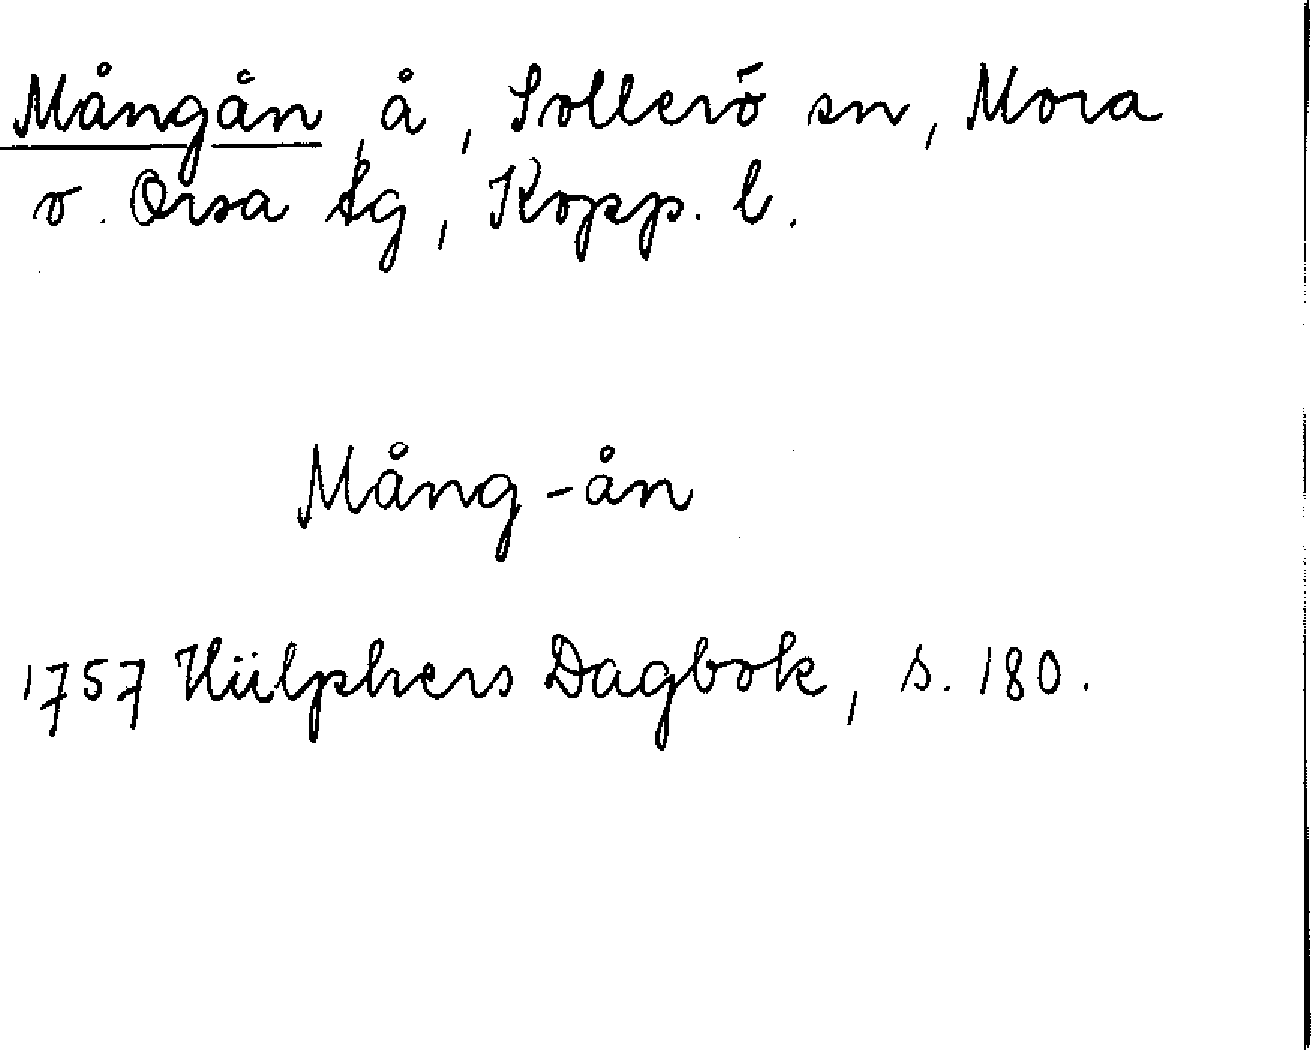 Mångån, å, Sollerö sn, Mora
o. Orsa tg, Kopp. l.
Mång-ån
1757 Hülphers Dagbok, s. 180.